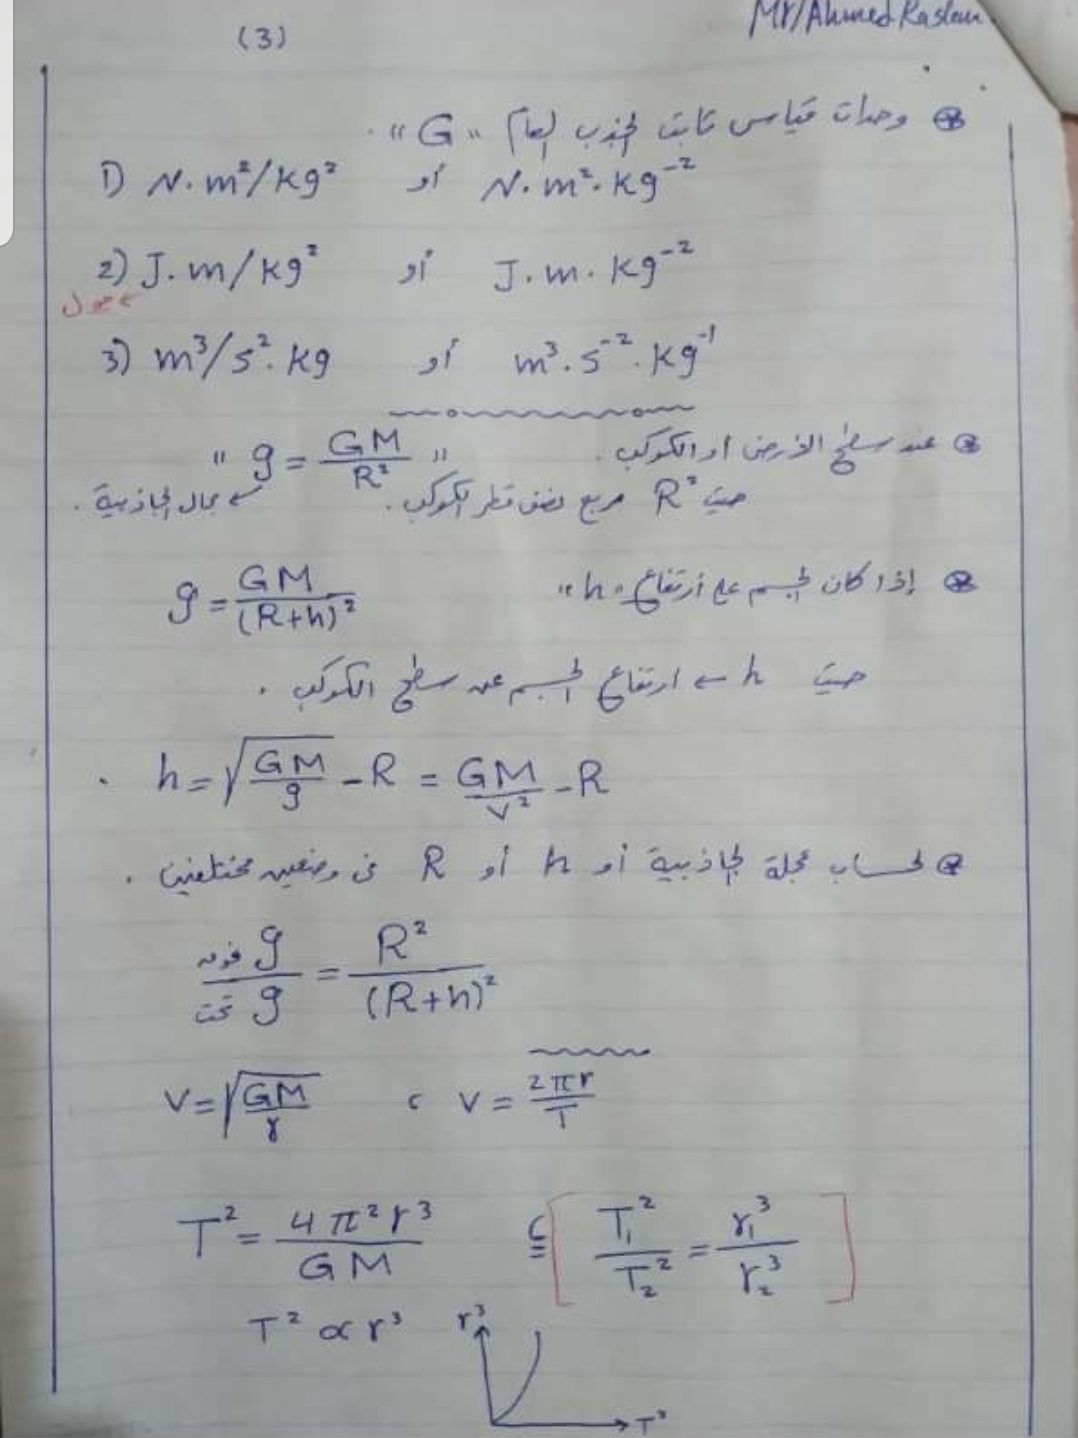 (3)
Mr/Ahmed Raslan
⊛ وحدات قياس ثابت الجذب العام "G".
1) N.m²/kg² أو N.m².kg⁻²
2) J.m/kg² أو J.m.kg⁻²
← جول
3) m³/s².kg أو m³.s⁻².kg⁻¹
⊛ عند سطح الأرض أو الكوكب. "g = GM/R²"
حيث R² مربع نصف قطر الكوكب. ← مجال الجاذبية.
⊛ إذا كان الجسم على أرتفاع "h" g = GM/(R+h)²
حيث h ← ارتفاع الجسم عن سطح الكوكب.
h = √(GM/g) - R = GM/v² - R
⊛ لحساب عجلة الجاذبية أو h أو R فى وضعين مختلفين.
g فوق / g تحت = R²/(R+h)²
v = √(GM/r) ، v = 2πr/T
T² = 4π²r³/GM ، [T₁²/T₂² = r₁³/r₂³]
T² ∝ r³
r³
T²